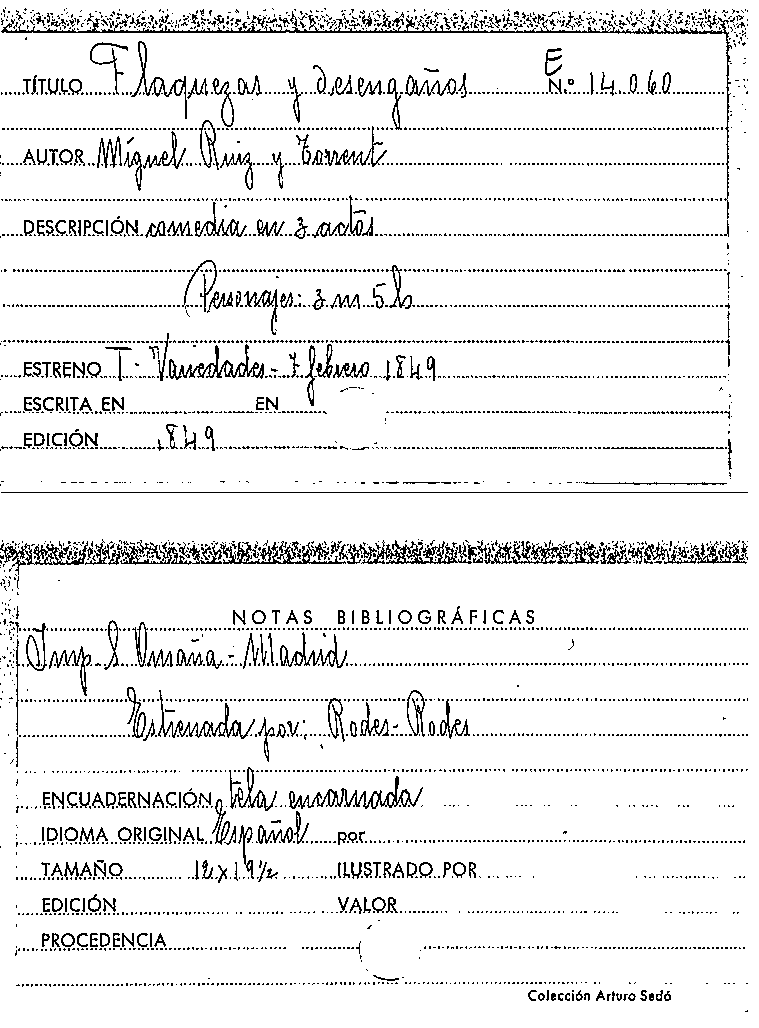 E
TÍTULO Flaquezas y desengaños N.º 14.060
AUTOR Miguel Ruiz y Torrent
DESCRIPCIÓN comedia en 3 actos
Personajes: 3 m 5 h
ESTRENO T. Variedades - 7 febrero 1849
ESCRITA EN EN
EDICIÓN 1849
NOTAS BIBLIOGRÁFICAS
Imp. S. Omaña - Madrid
Estrenada por: Rodes - Rodes
ENCUADERNACIÓN tela encarnada
IDIOMA ORIGINAL Español por
TAMAÑO 12 x 19 1/2 ILUSTRADO POR
EDICIÓN VALOR
PROCEDENCIA
Colección Arturo Sedó